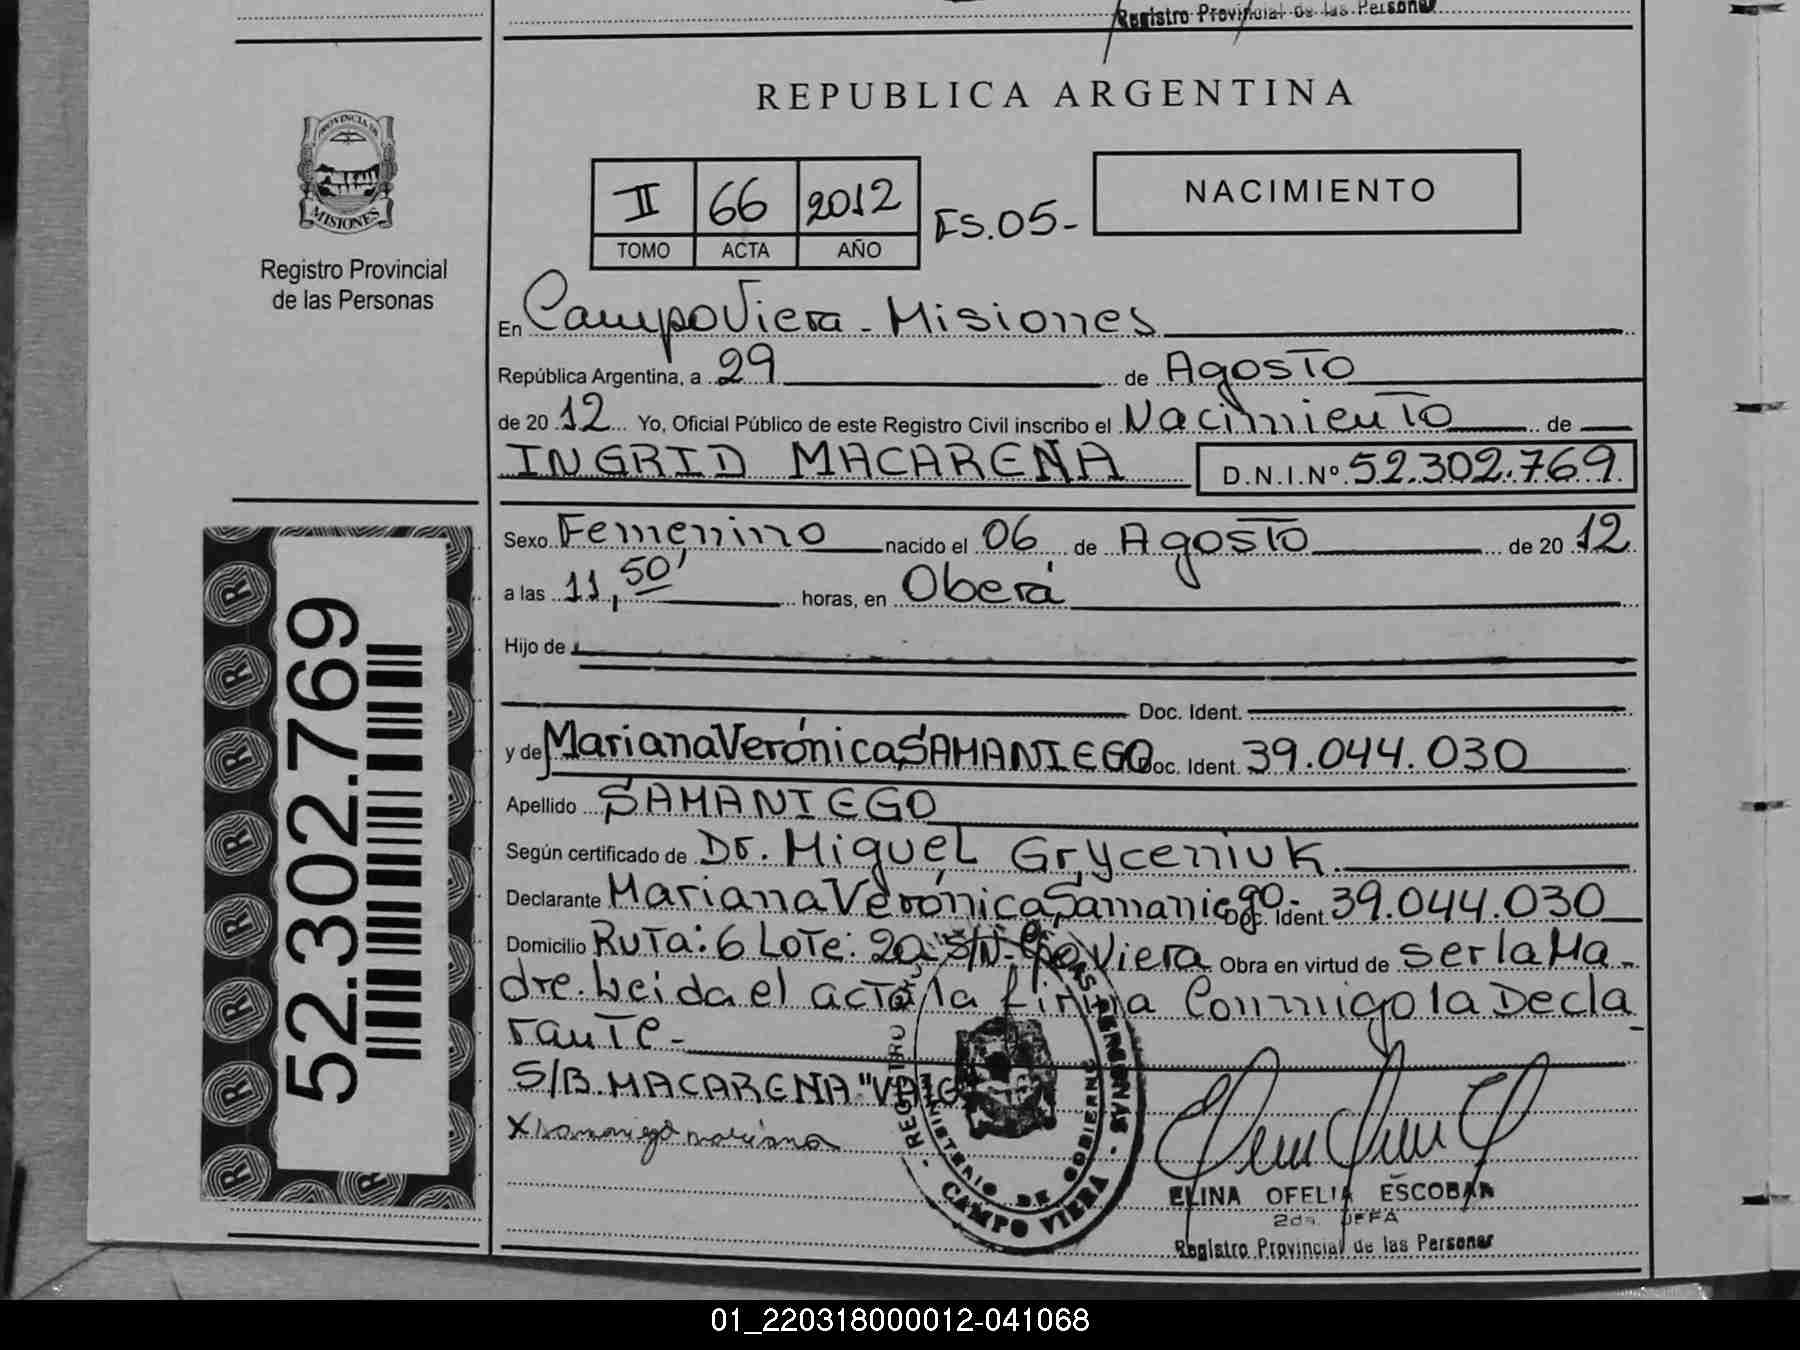 Registro Provincial de las Personas
REPUBLICA ARGENTINA
PROVINCIA DE
MISIONES
Registro Provincial
de las Personas
II 66 2012
TOMO ACTA AÑO
FS.05-
NACIMIENTO
En Campo Viera - Misiones
República Argentina, a 29 de Agosto
de 20 12 Yo, Oficial Público de este Registro Civil inscribo el Nacimiento de
INGRID MACARENA D.N.I.Nº 52.302.769
Sexo Femenino nacido el 06 de Agosto de 20 12
a las 11,50' horas, en Oberá
Hijo de
Doc. Ident.
y de Mariana Verónica SAMANIEGO Doc. Ident. 39.044.030
Apellido SAMANIEGO
Según certificado de Dr. Miguel Gryceniuk
Declarante Mariana Verónica Samaniego- Doc. Ident. 39.044.030
Domicilio Ruta: 6 Lote: 20 S/N- Viera Obra en virtud de ser la Ma-
dre. Leida el acta la firma Conmigo la Decla
rante-
S/B. MACARENA "
X Samaniego mariana
REGISTRO DE LAS PERSONAS
MINISTERIO DE GOBIERNO
CAMPO VIERA
ELINA OFELIA ESCOBAR
2da. JEFA
Registro Provincial de las Personas
52.302.769
01_220318000012-041068